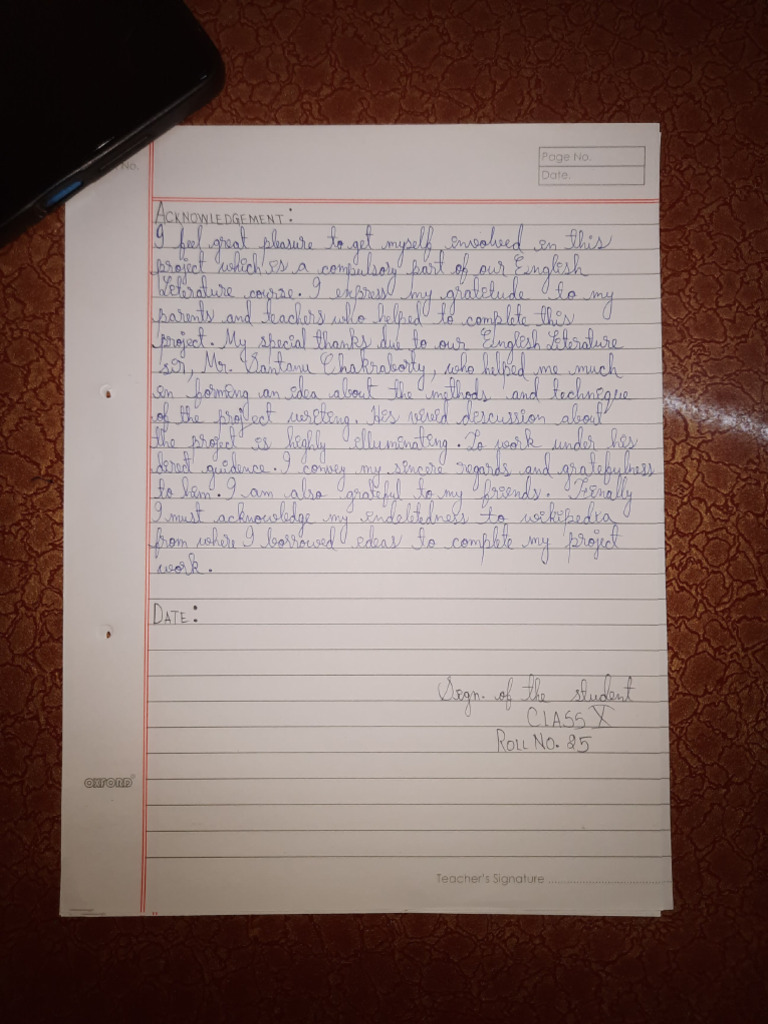 No.
Page No.
Date.
ACKNOWLEDGEMENT:
I feel great pleasure to get myself envolved in this
project which is a compulsory part of our English
Literature course. I express my gratitude to my
parents and teachers who helped to complete this
project. My special thanks due to our English Literature
sir, Mr. Santanu Chakraborty, who helped me much
in forming an idea about the methods and technique
of the project writing. His vivid discussion about
the project is highly illuminating. To work under his
direct guidence. I convey my sincere regards and gratefulness
to him. I am also grateful to my friends. Finally
I must acknowledge my indebtedness to wikipedia
from where I borrowed ideas to complete my project
work.
DATE:
Sign. of the student
CLASS X
ROLL NO. 25
oxford
Teacher's Signature